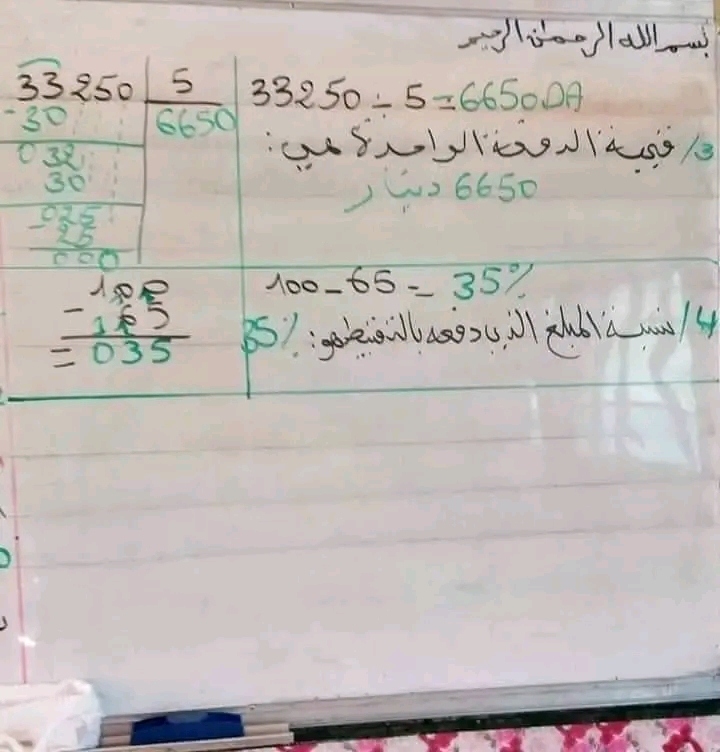 بسم الله الرحمن الرحيم
33250 ÷ 5 = 6650DA
3/ قيمة الدفعة الواحدة هي:
6650 دينار
33250 5
-30 6650
032
30
025
-25
000
100 - 65 = 35%
4/ نسبة المبلغ الذي دفعه بالتقسيط هو: 35%
100
- 65
= 035